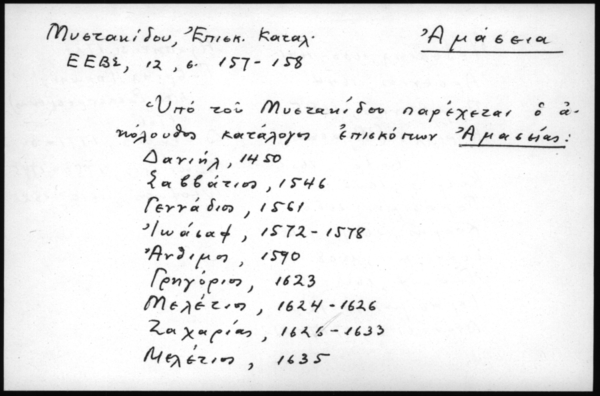 Μυστακίδου, Ἐπισκ. Καταλ.
Ἀμάσεια
ΕΕΒΣ, 12, σ. 157-158
Ὑπό τοῦ Μυστακίδου παρέχεται ὁ ἀ-
κόλουθος κατάλογος ἐπισκόπων Ἀμασείας:
Δανιήλ, 1450
Σαββάτιος, 1546
Γεννάδιος, 1561
Ἰωάσαφ, 1572-1578
Ἄνθιμος, 1590
Γρηγόριος, 1623
Μελέτιος, 1624-1626
Ζαχαρίας, 1626-1633
Μελέτιος, 1635